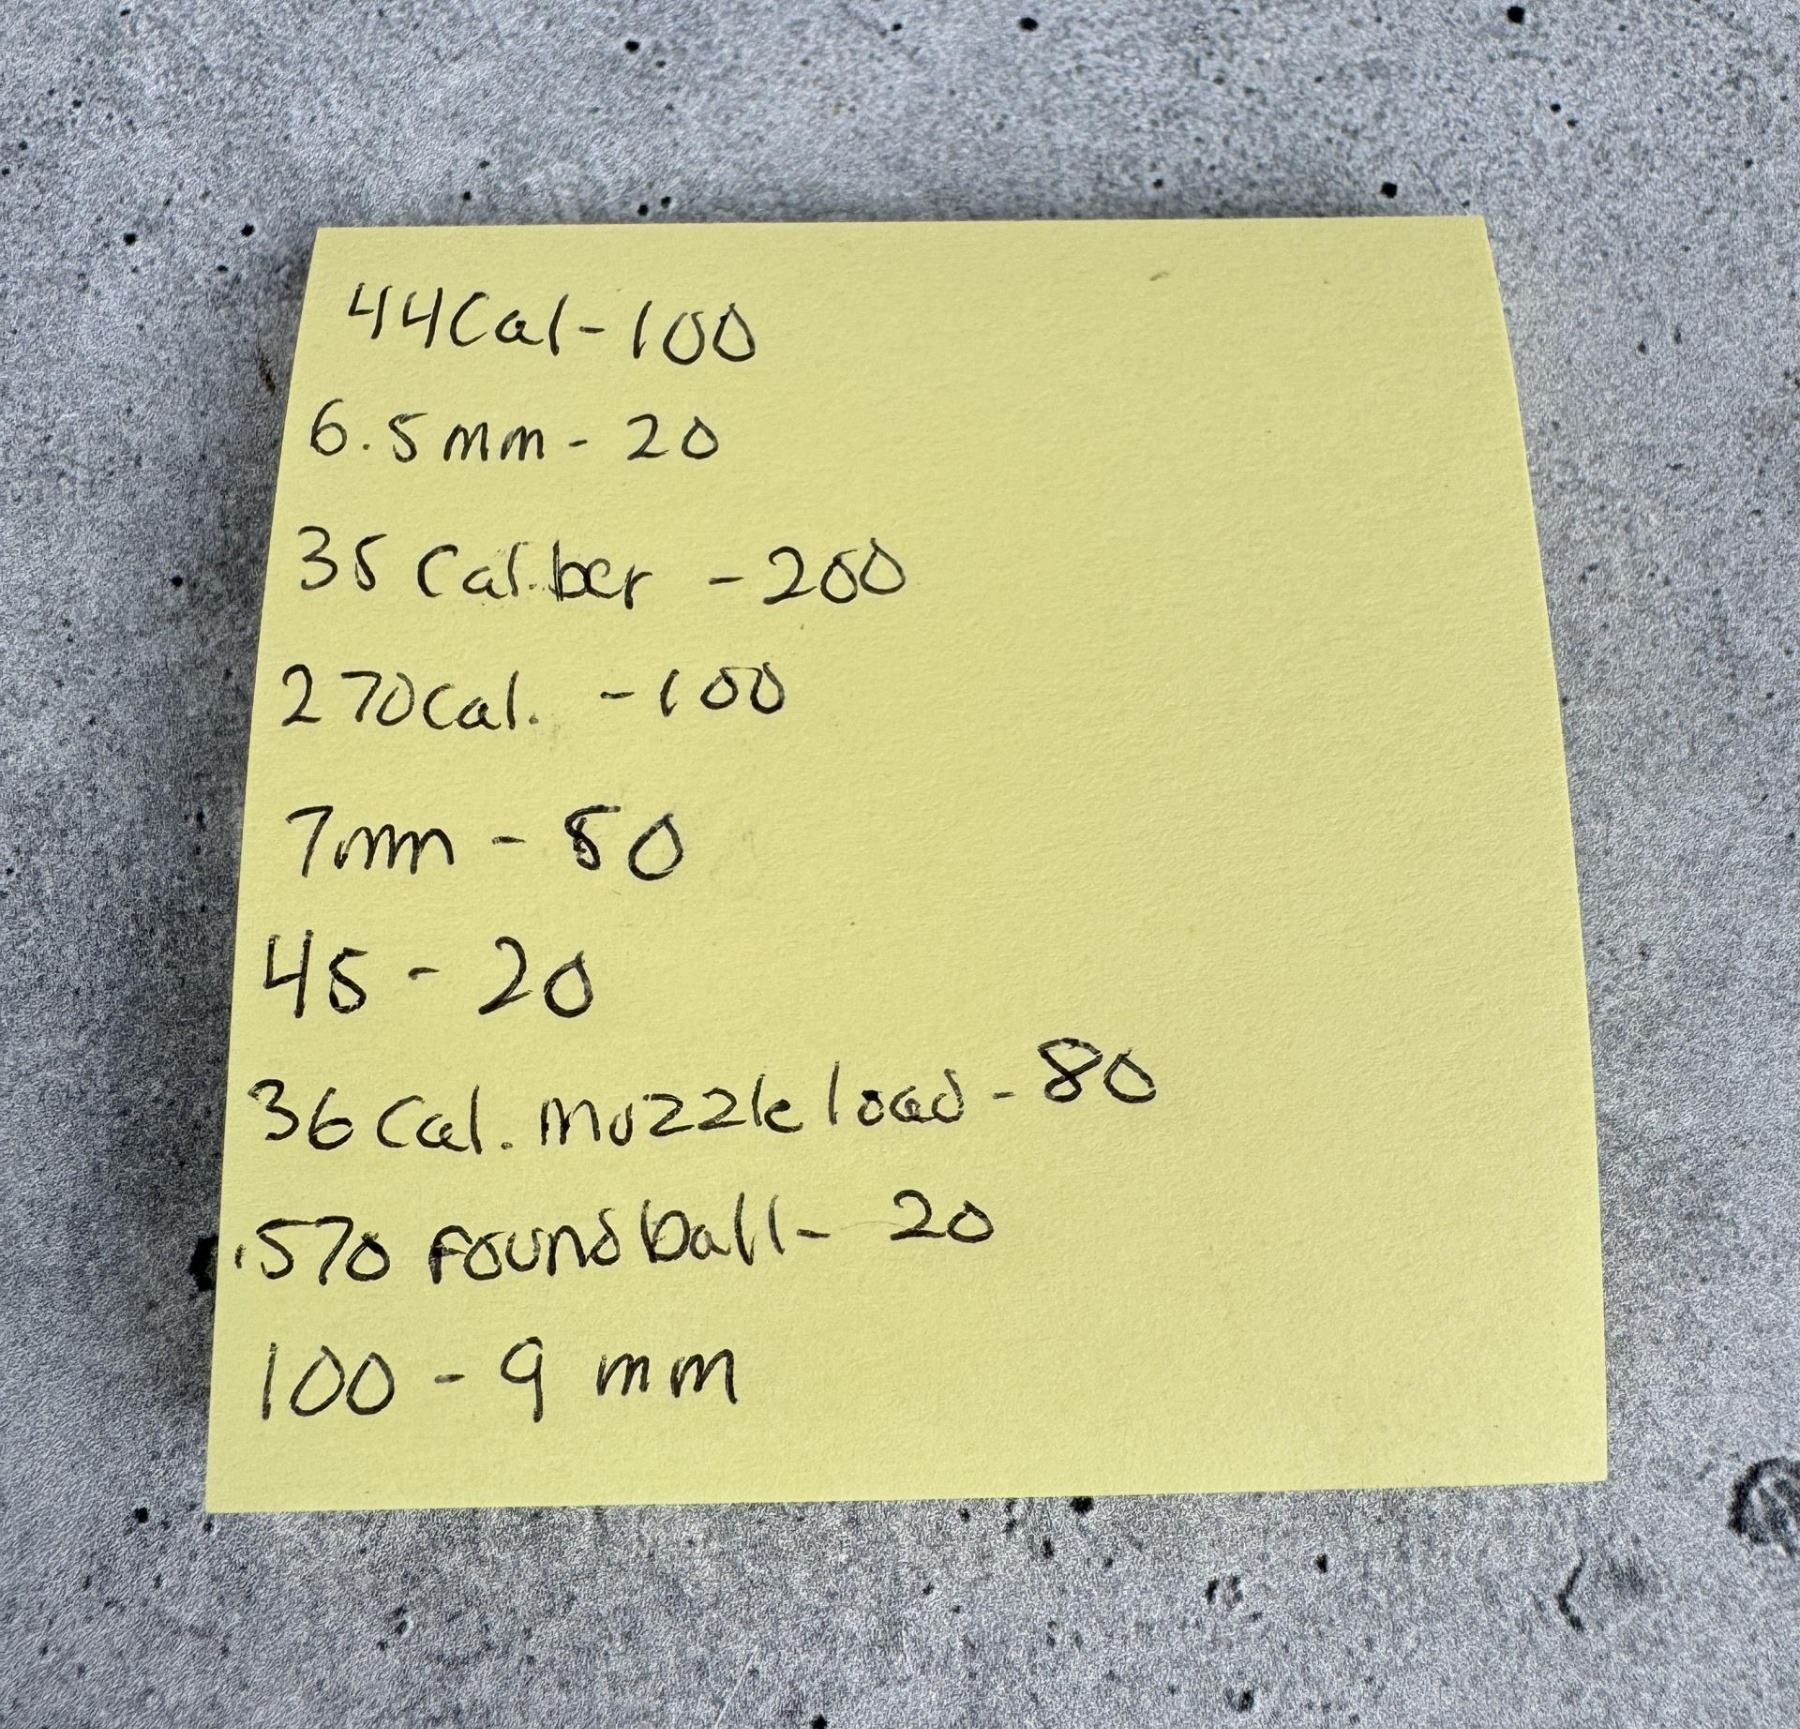 44 Cal - 100
6.5 mm - 20
35 Caliber - 200
270 Cal. - 100
7mm - 50
45 - 20
36 Cal. muzzle load - 80
.570 round ball - 20
100 - 9 mm